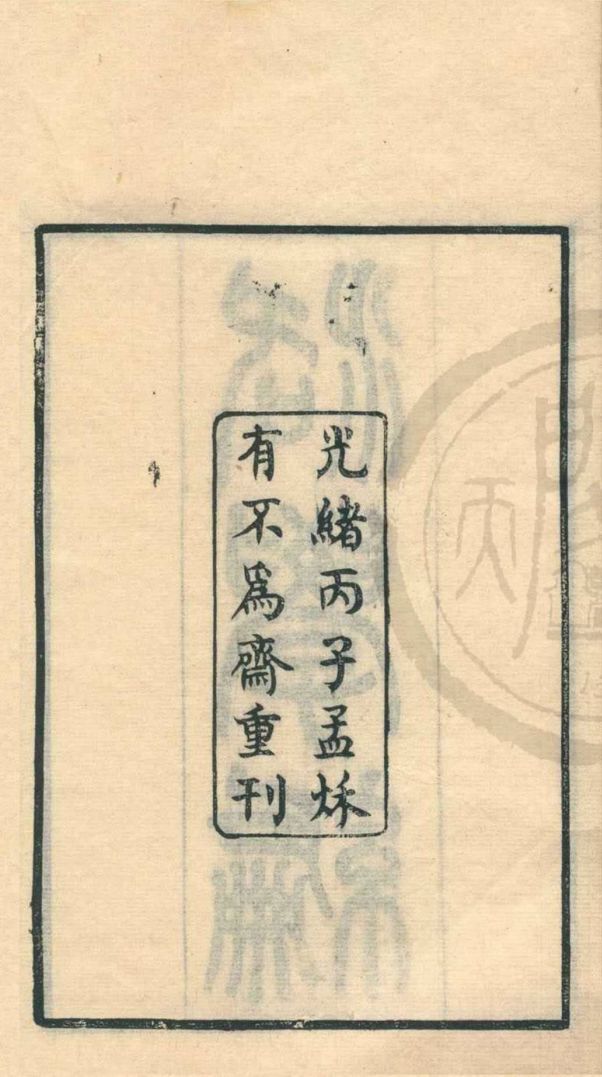 光緒丙子孟秌
有不爲齋重刊